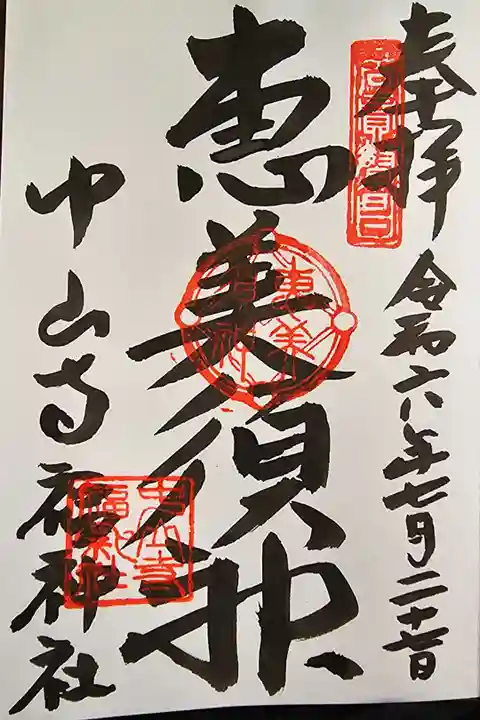 奉拝
令和六年七月二十六日
恵美須神
中山寺福神社
恵美須神
中山寺福神社